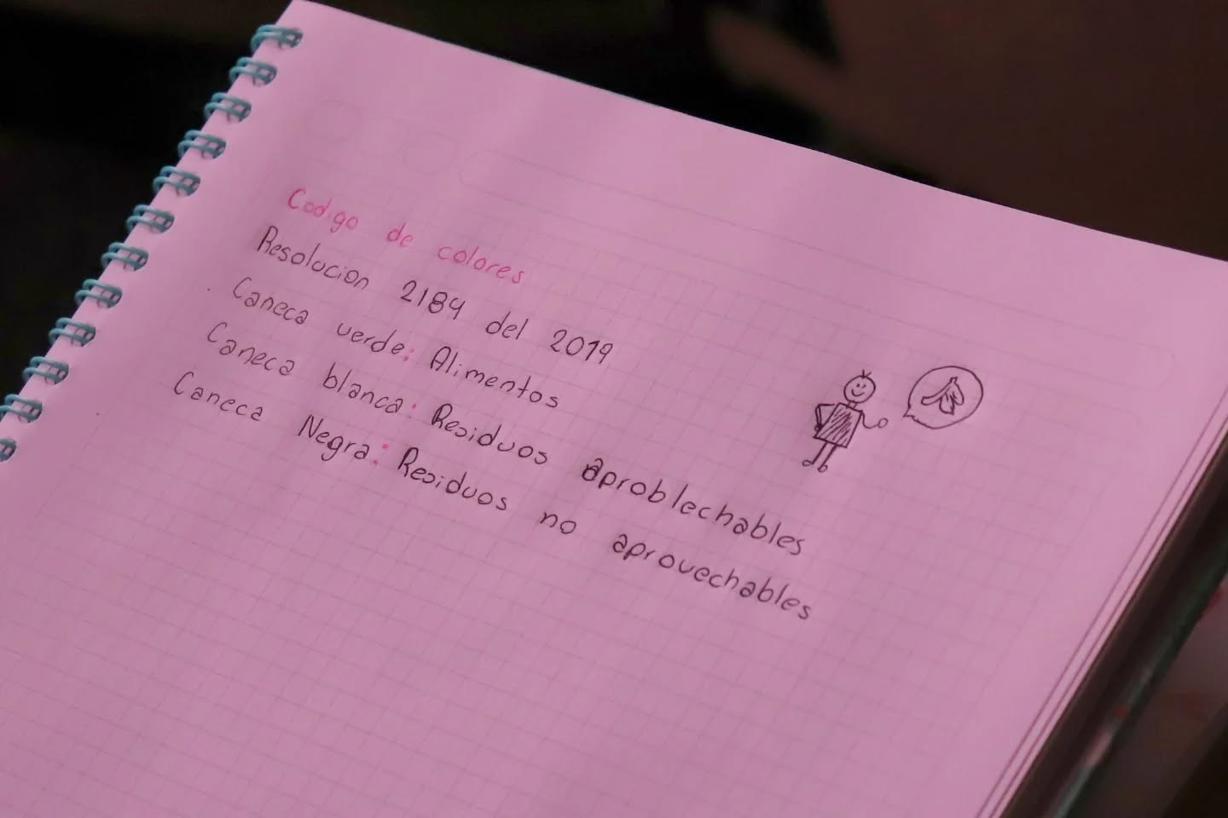 Codigo de colores
Resolucion 2184 del 2019
Caneca verde: Alimentos
Caneca blanca: Residuos aproblechables
Caneca Negra: Residuos no aprovechables